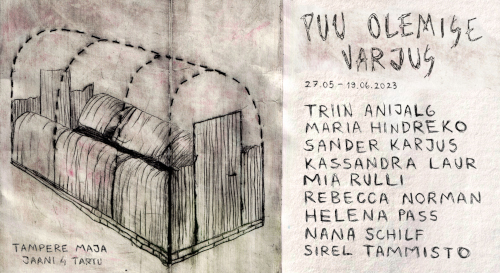 PUU OLEMISE
VARJUS
27.05 – 19.06.2023
TRIIN ANIJALG
MARIA HINDREKO
SANDER KARJUS
KASSANDRA LAUR
MIA RULLI
REBECCA NORMAN
HELENA PASS
NANA SCHILF
SIREL TAMMISTO
TAMPERE MAJA
JAANI 4 TARTU